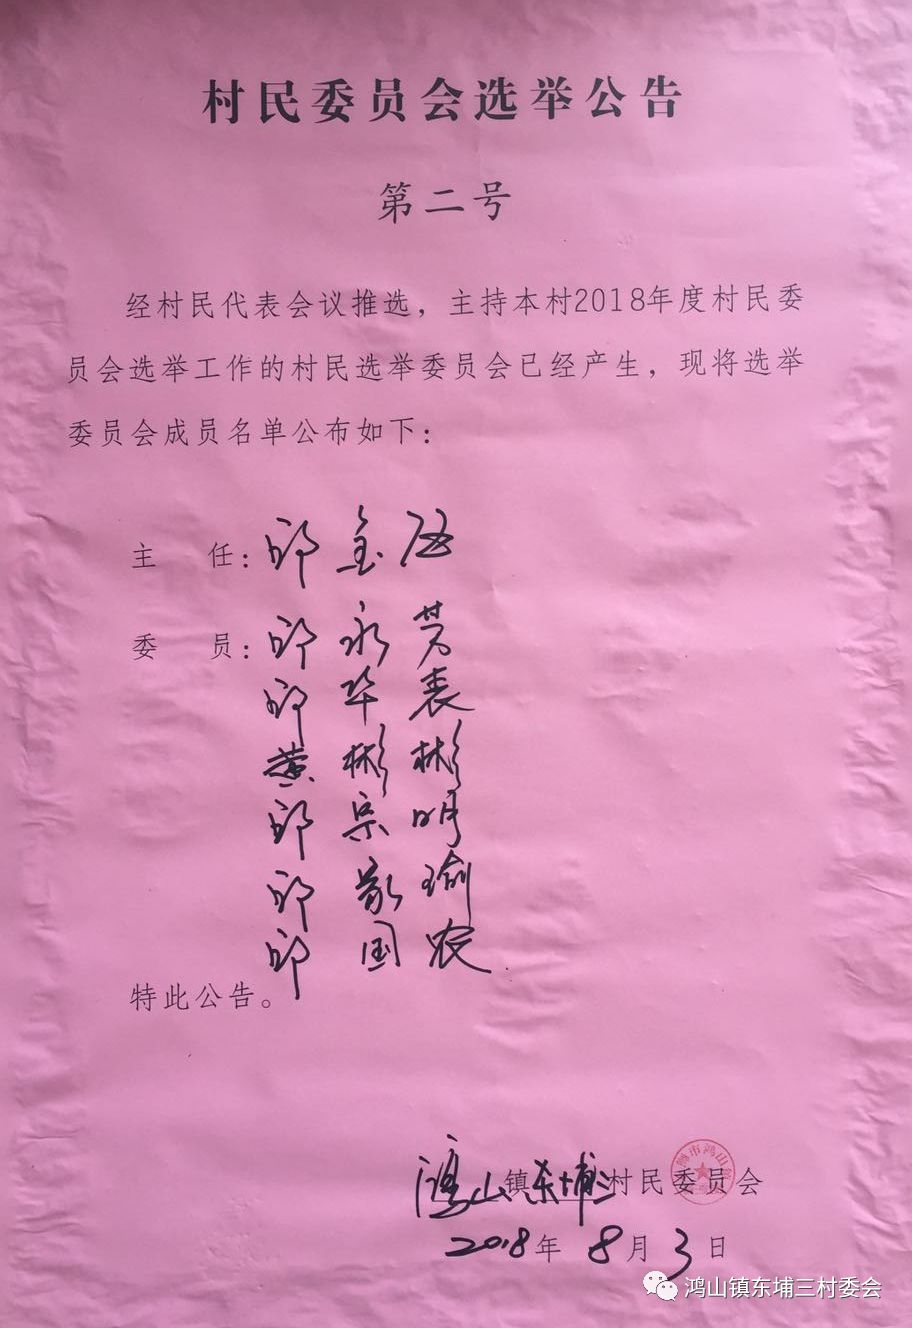 村民委员会选举公告
第二号
经村民代表会议推选，主持本村2018年度村民委
员会选举工作的村民选举委员会已经产生，现将选举
委员会成员名单公布如下：
主　任：邱金伍
委　员：邱永芳
邱华表
黄彬彬
邱宗明
邱敬瑜
邱国农
特此公告。
鸿山镇东埔三村民委员会
2018年8月3日
鸿山镇东埔三村委会